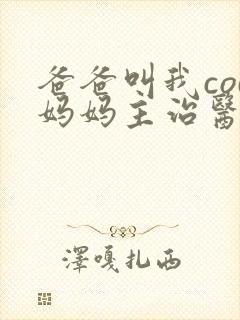 爸爸叫我co
妈妈主治醫
澤嘎扎西